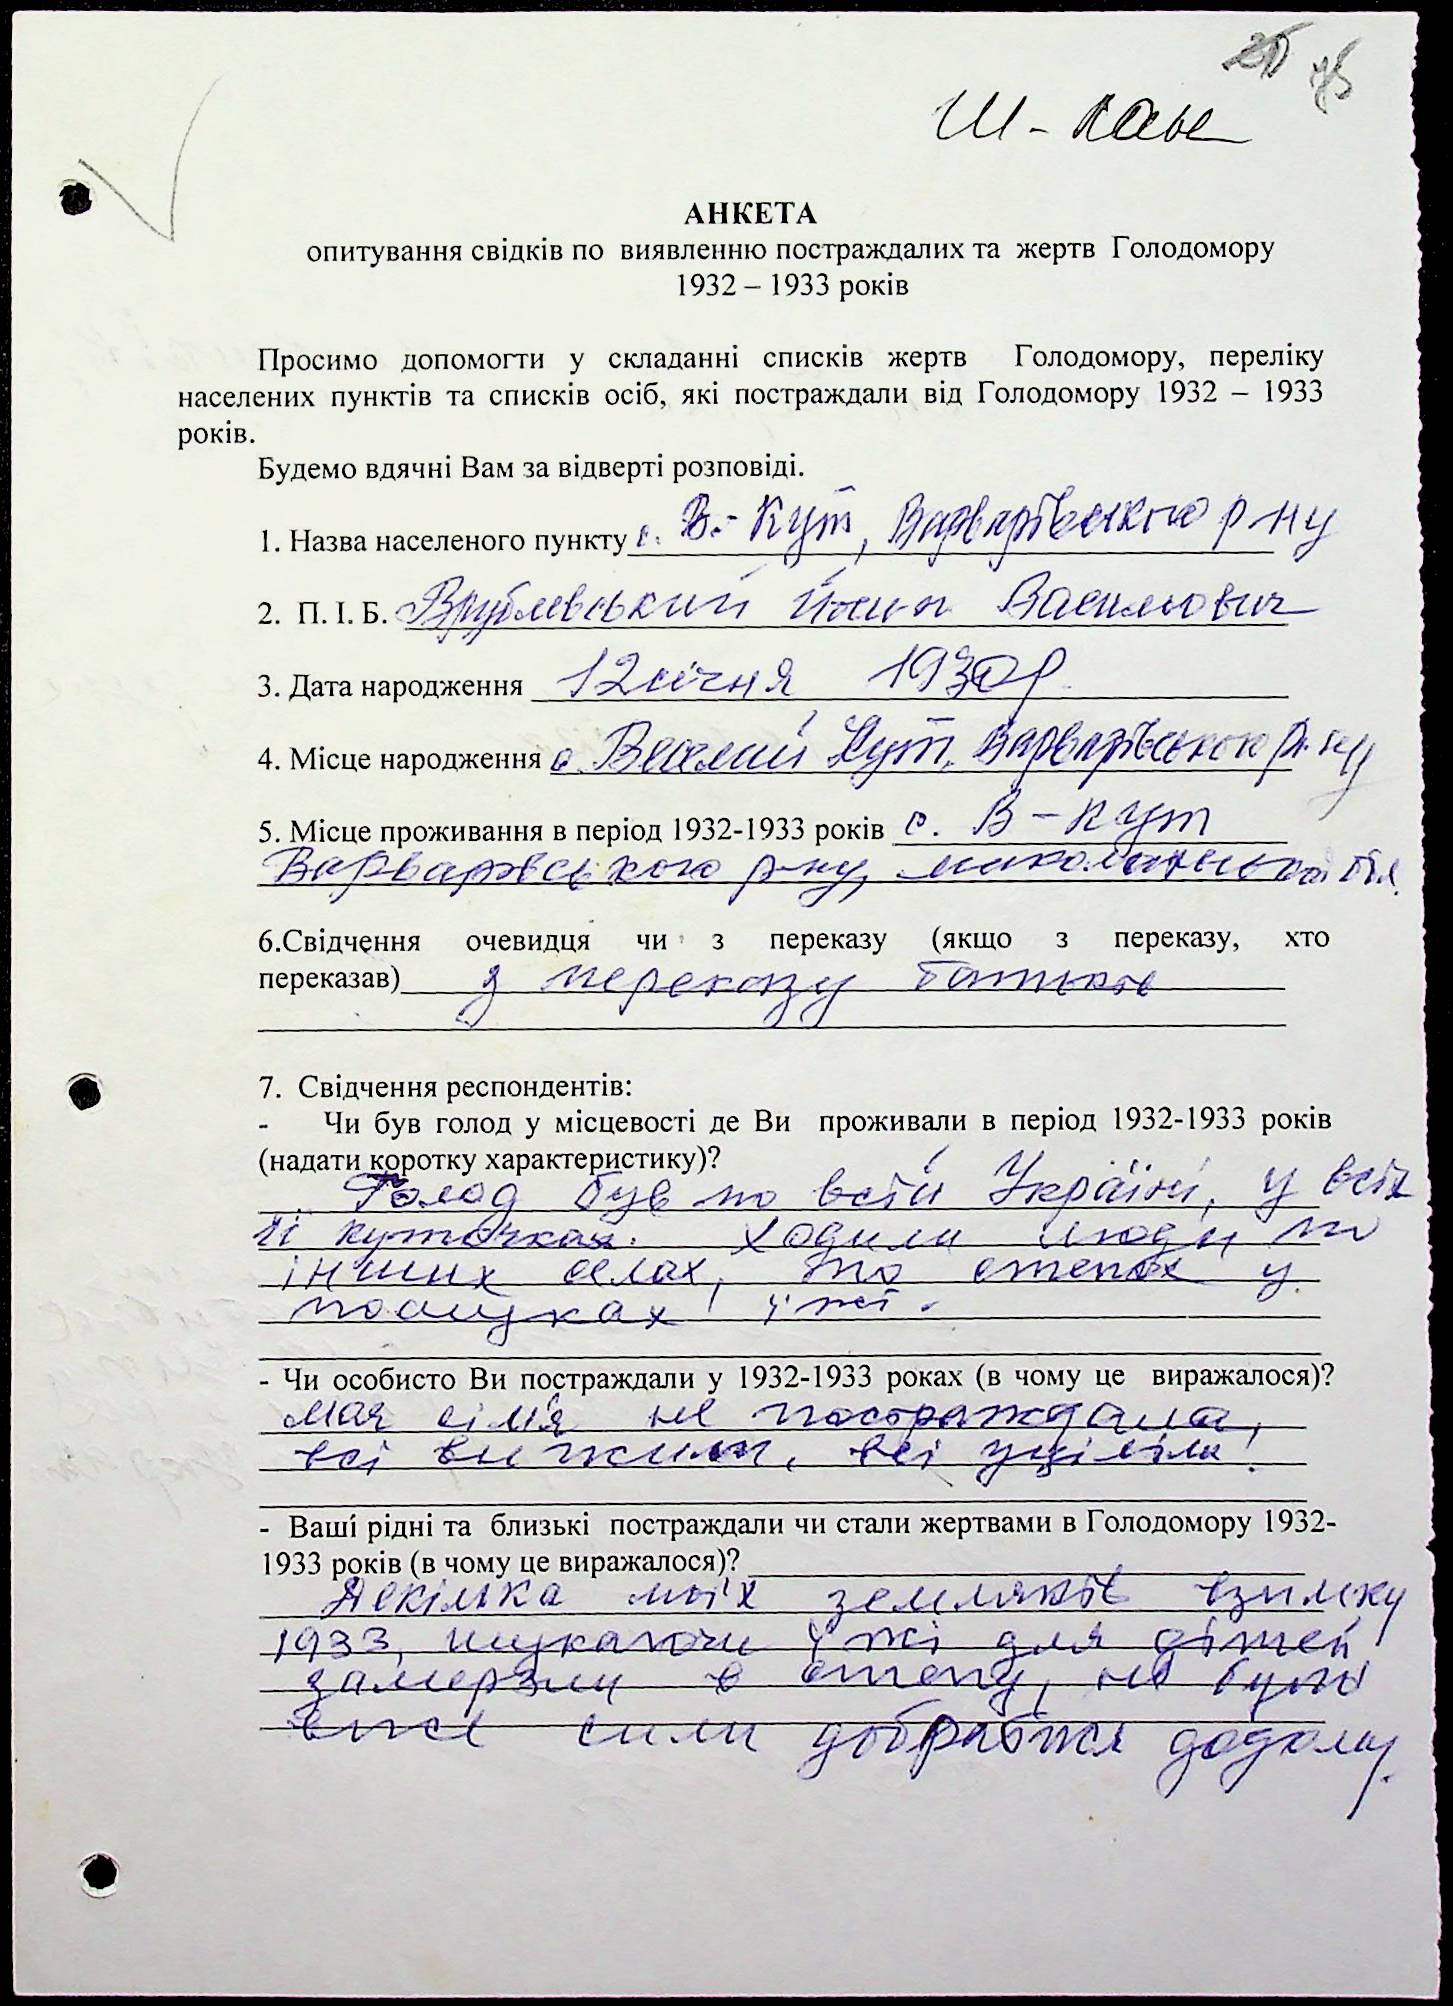 75
АНКЕТА
опитування свідків по виявленню постраждалих та жертв Голодомору
1932 – 1933 років
Просимо допомогти у складанні списків жертв Голодомору, переліку
населених пунктів та списків осіб, які постраждали від Голодомору 1932 – 1933
років.
Будемо вдячні Вам за відверті розповіді.
1. Назва населеного пункту с. В.-Кут, Варварівського р-ну
2. П. І. Б. Врублевський Васильович
3. Дата народження 12 січня 1930 р.
4. Місце народження с. Веселий Кут, Варварівського р-ну
5. Місце проживання в період 1932-1933 років с. В-Кут
Варварівського р-ну, Миколаївської обл.
6.Свідчення очевидця чи з переказу (якщо з переказу, хто
переказав) з переказу батьків
7. Свідчення респондентів:
- Чи був голод у місцевості де Ви проживали в період 1932-1933 років
(надати коротку характеристику)?
Голод був по всій Україні, у всіх
її куточках. Ходили люди по
інших селах, по степах у
пошуках їжі.
- Чи особисто Ви постраждали у 1932-1933 роках (в чому це виражалося)?
Моя сім'я не постраждала,
всі вижили, всі уціліли!
- Ваші рідні та близькі постраждали чи стали жертвами в Голодомору 1932-
1933 років (в чому це виражалося)?
Декілька моїх земляків взимку
1933, шукаючи їжі для дітей
замерзли в степу, не було
вже сили добратися додому.